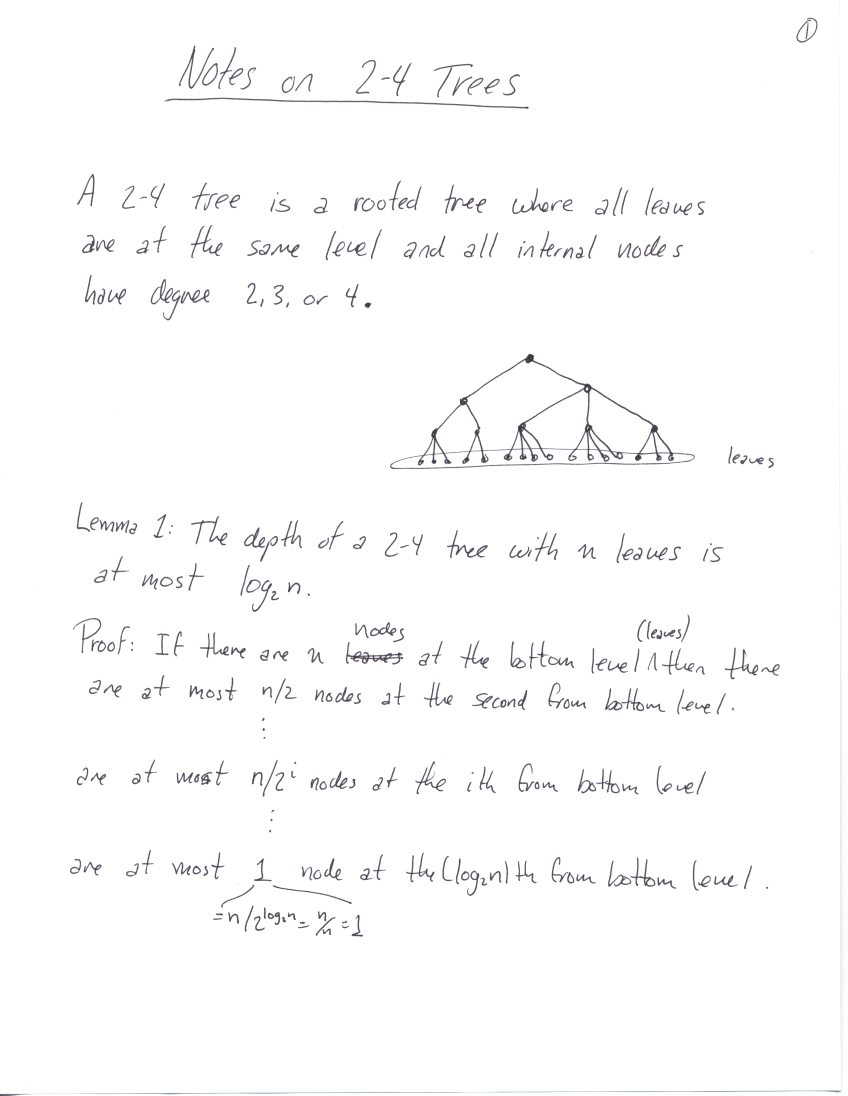 ①
Notes on 2-4 Trees
A 2-4 tree is a rooted tree where all leaves
are at the same level and all internal nodes
have degree 2, 3, or 4.
leaves
Lemma 1: The depth of a 2-4 tree with n leaves is
at most log₂ n.
nodes (leaves)
Proof: If there are n leaves at the bottom level ∧ then there
are at most n/2 nodes at the second from bottom level.
⋮
are at most n/2ⁱ nodes at the ith from bottom level
⋮
are at most 1 node at the (log₂n)th from bottom level.
= n/2^log₂n = n/n = 1